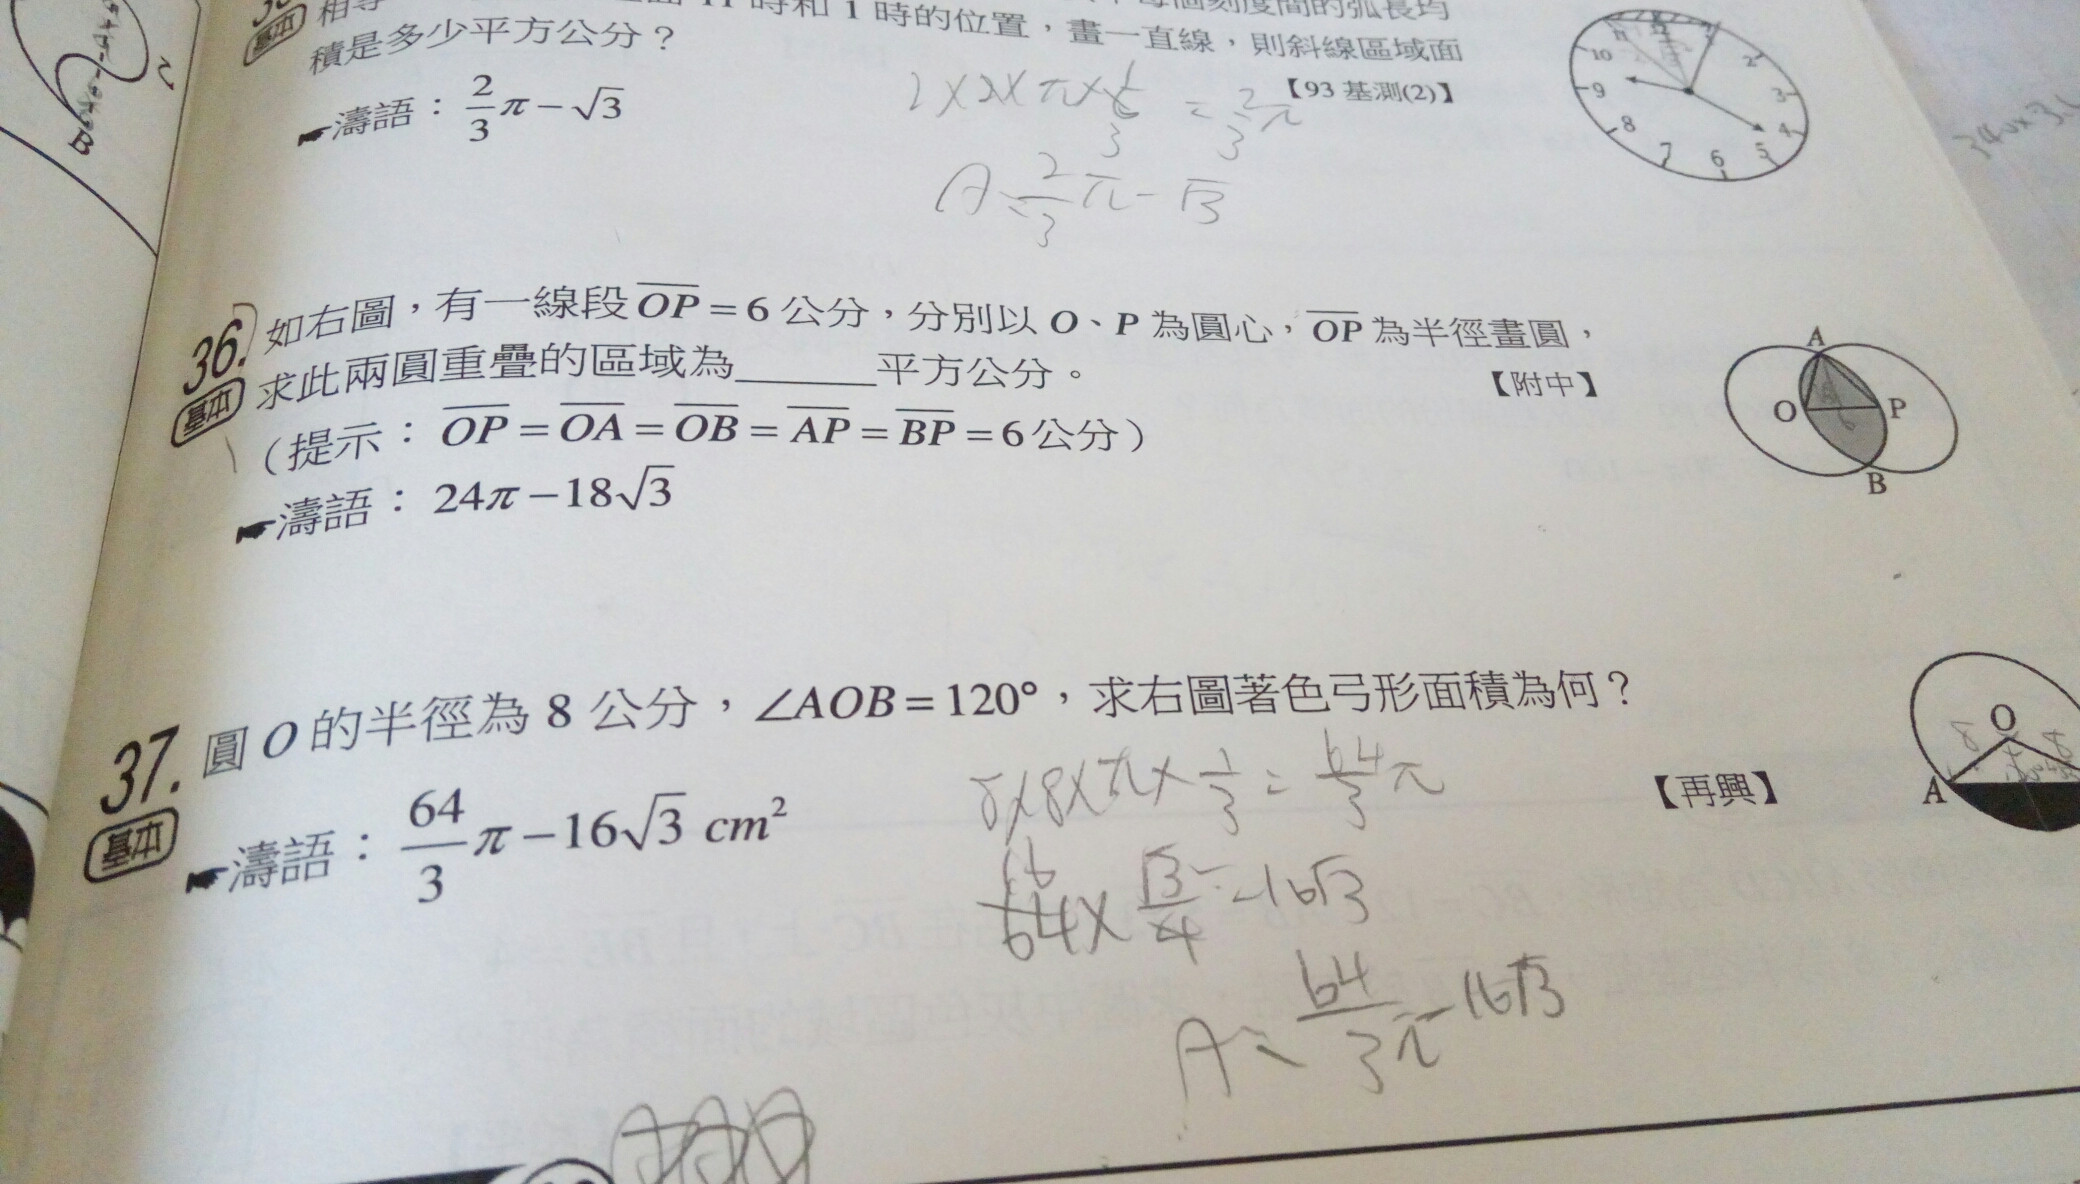 時和 1 時的位置，畫一直線，則斜線區域面
積是多少平方公分？
【93 基測(2)】
基本
濤語： 2/3 π − √3
2×2×π×1/6 = 2/3 π
3
A = 2/3 π − √3
11 12 1
10 2
9 3
8 4
7 6 5
B
36. 如右圖，有一線段 OP = 6 公分，分別以 O、P 為圓心，OP 為半徑畫圓，
基本
求此兩圓重疊的區域為______平方公分。
【附中】
（提示： OP = OA = OB = AP = BP = 6 公分）
濤語： 24π − 18√3
A
O P
6
B
37. 圓 O 的半徑為 8 公分，∠AOB = 120°，求右圖著色弓形面積為何？
基本
【再興】
濤語： 64/3 π − 16√3 cm²
8×8×π×1/3 = 64/3 π
16
64×√3/4 = 16√3
A = 64/3 π − 16√3
O
8 8
A